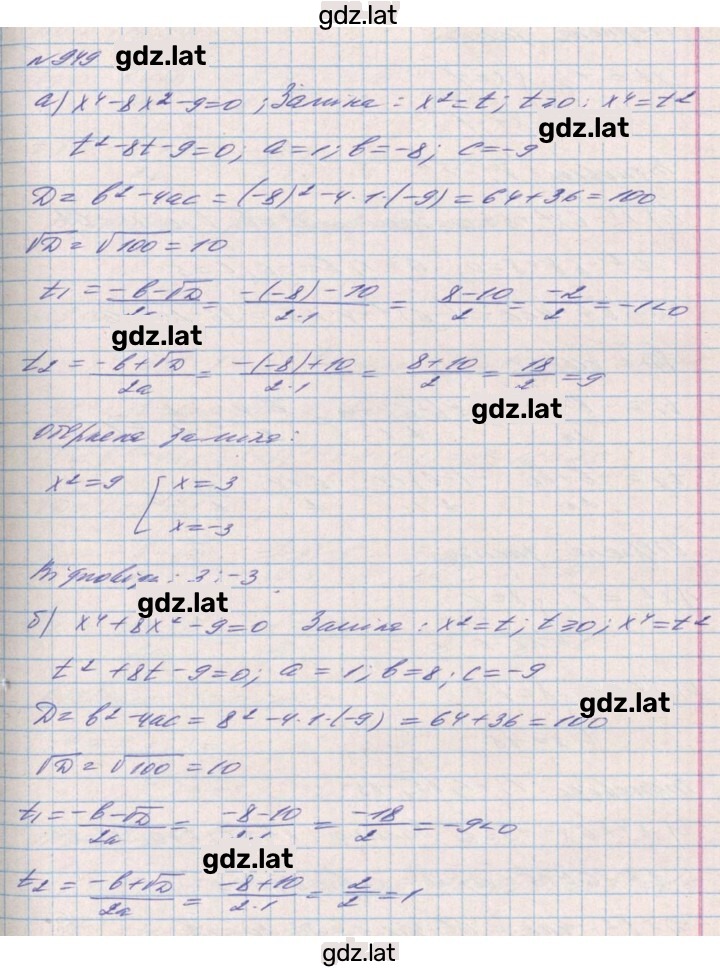 gdz.lat
№949 gdz.lat
а) x⁴-8x²-9=0 ; Заміна : x²=t ; t≥0 ; x⁴=t²
gdz.lat
t²-8t-9=0; a=1; b=-8; c=-9
D= b²-4ac = (-8)²-4·1·(-9) = 64+36=100
√D = √100 = 10
t₁ = (-b-√D)/2a = (-(-8)-10)/(2·1) = (8-10)/2 = -2/2 = -1<0
gdz.lat
t₂ = (-b+√D)/2a = (-(-8)+10)/(2·1) = (8+10)/2 = 18/2 = 9
gdz.lat
заміна:
x²=9 [ x=3
x=-3
Відповідь : 3 ; -3
gdz.lat
б) x⁴+8x²-9=0 Заміна : x²=t ; t≥0 ; x⁴=t²
t²+8t-9=0; a=1; b=8; c=-9
gdz.lat
D= b²-4ac = 8²-4·1·(-9) = 64+36=100
√D = √100 = 10
t₁ = (-b-√D)/2a = (-8-10)/(2·1) = -18/2 = -9<0
gdz.lat
t₂ = (-b+√D)/2a = (-8+10)/(2·1) = 2/2 = 1
gdz.lat